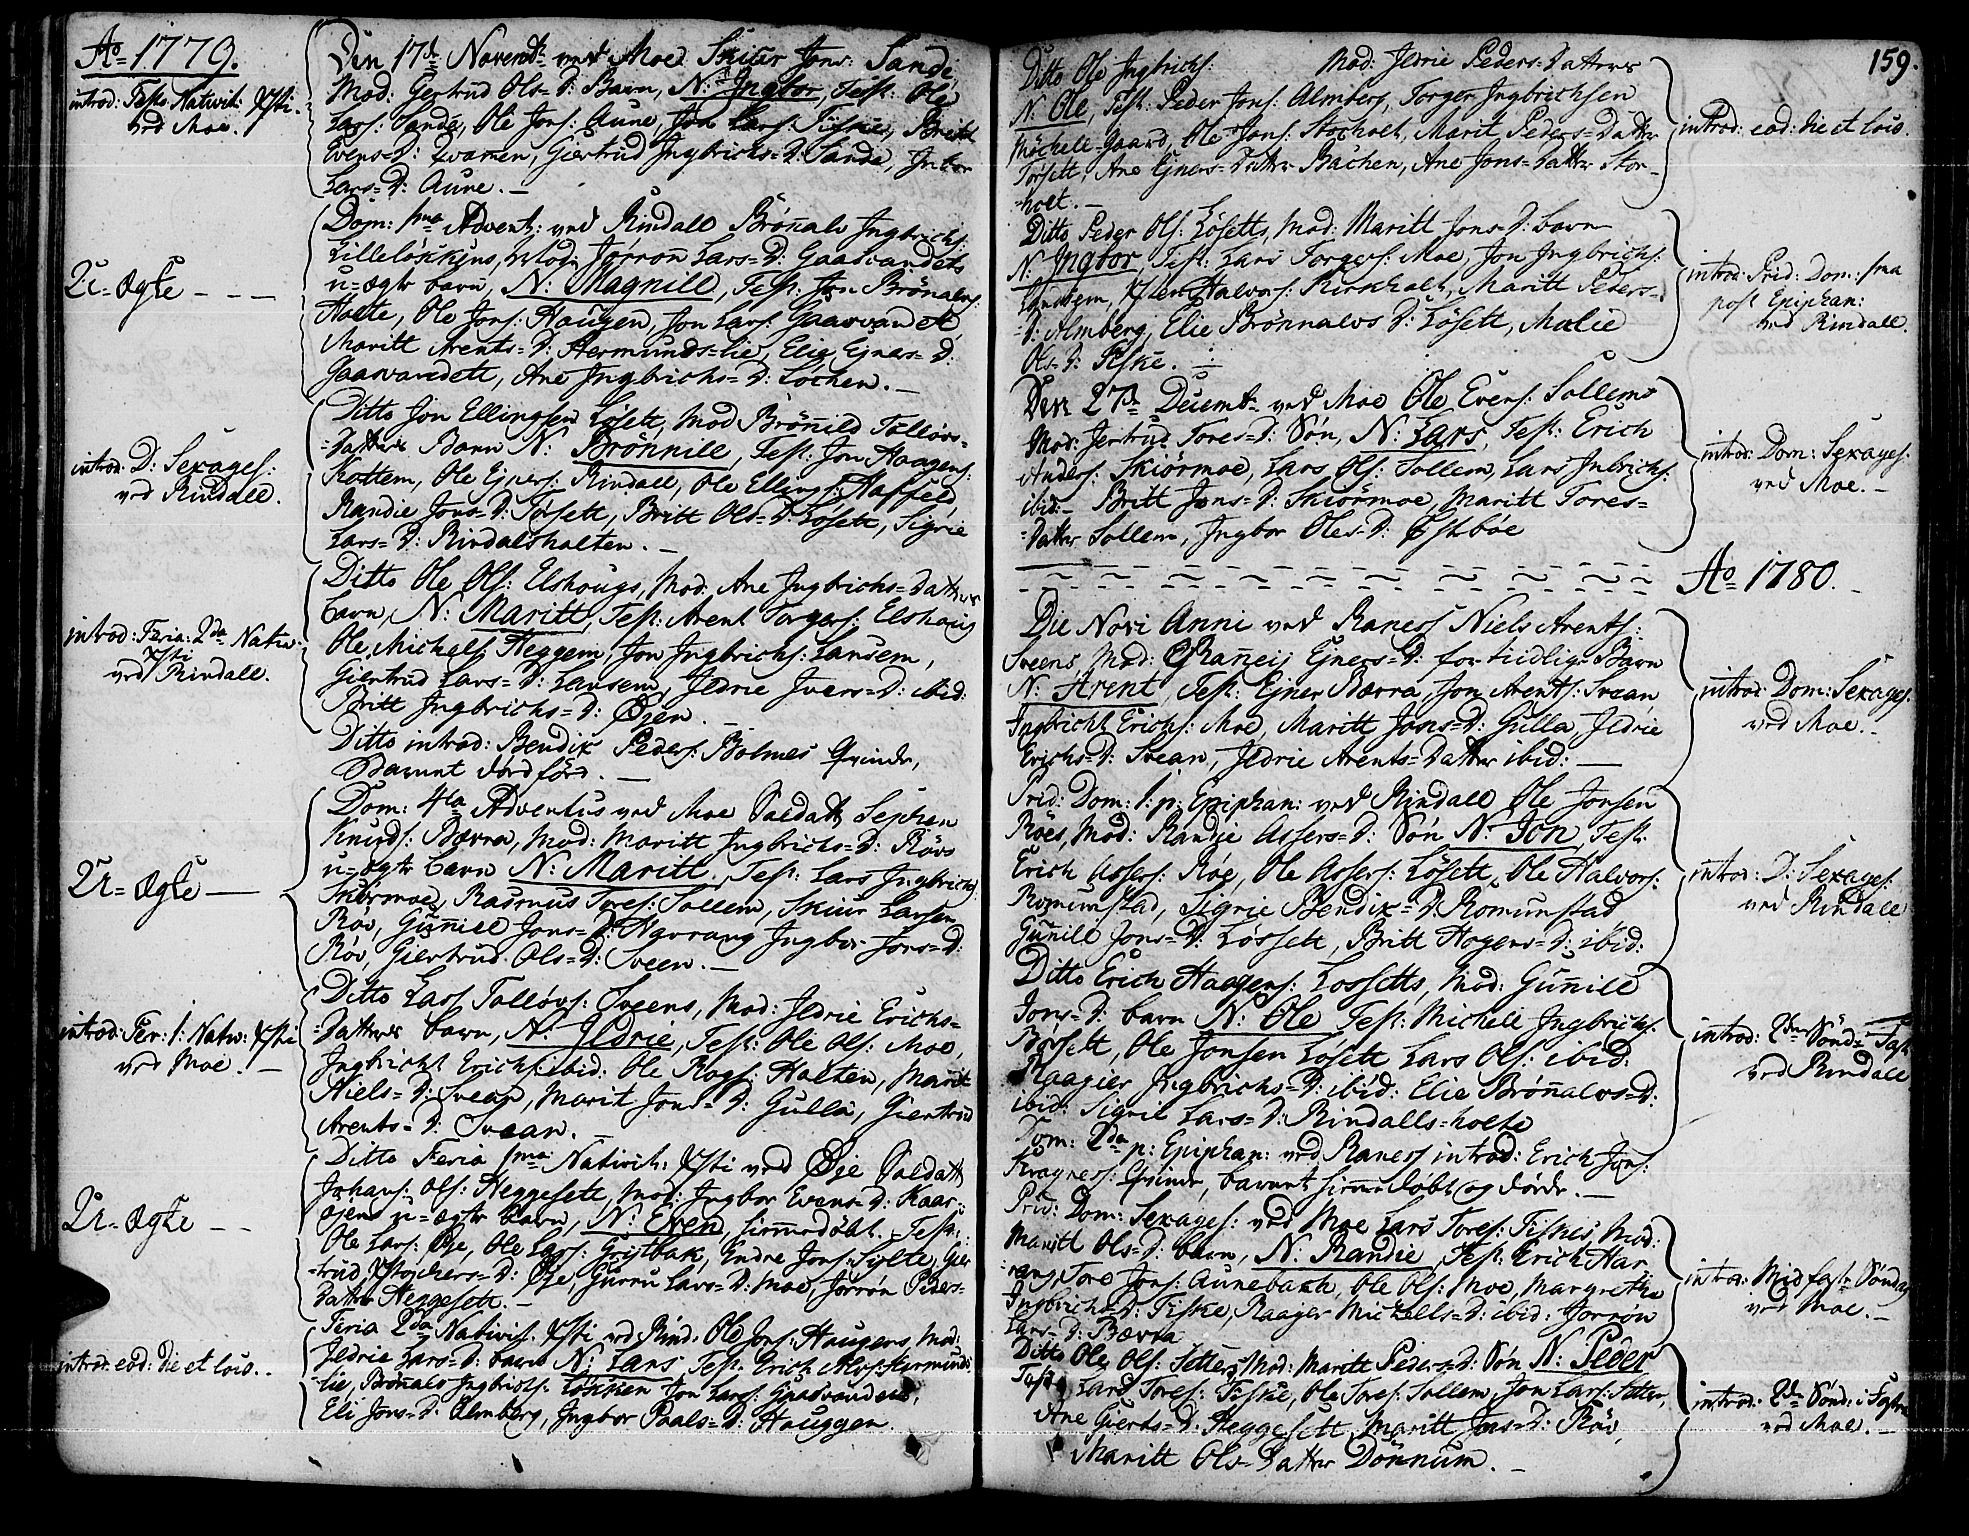 Ao 1779.
introd: Festo Nativit: Xsti.
ved Moe.
Den 17de Novembr ved Moe Skiær Jons: Sande
Mod: Gertrud Ols=D: Barn, N: Ingbor, Test: Ole
Lars: Sande, Ole Jons: Aune, Jon Lars: Tiske, Britt
Evens=D: Qvammen, Giertrud Ingbrichs=D: Sande, Inbor
Lars=D: Aune. —
U=ægte - - -
Dom: 1ma Advent: ved Rindall Brönals Ingbrichs:
Lilleløkkens, Mod: Jorron Lars=D: Gaasvandets
u=ægte barn, N: Magnill, Test: Jon Brönals:
Holte, Ole Jons: Haugen, Jon Lars: Gaasvandet
Maritt Arents=D: Hermunds=lie, Elie Ejners=D:
Gaasvandett, Ane Ingbrichs=D: Löchen. —
introd: D: Sexages:
ved Rindall.
Ditto Jon Ellingsen Löset, Mod Brönild Tolløvs=
=Datters Barn N: Brönnild, Test: Jon Haagens:
Rottem, Ole Ejners: Rindall, Ole Ellings:
Randie Jons=D: Tosett, Britt Ols=D: Lösett, Sigrie
Lars=D: Rindalsholten. —
introd: Feria: 2da Nativ:
Xsti
ved Rindall.
Ditto Ole Ols: Elshougs, Mod: Ane Ingbrichs=Datters
barn, N: Maritt, Test: Arent Torgers: Elshoug
Ole Michels: Heggem, Jon Ingbrichs: Lansem,
Giertrud Lars=D: Lansem, Ildrie Ivers=D: ibid:
Britt Ingbrichs=D: Øjen. —
Ditto introd: Bendix Peders: Bolmes Qvinde,
Barnet dødfød. —
U=ægte —
Dom: 4ta Adventus ved Moe Soldatt Sephen
Knuds: Bævra, Mod: Maritt Ingbrichs=D: Röves
u=ægte barn N: Maritt, Test: Lars Ingbrichs:
Skiörmoe, Rasmus Tores: Sollem, Skiur Larsen
Röv, Gunnild Jons=D: Havrang Ingbor Jons=D:
Röv, Giertrud Ols=D: Sveen. —
introd: Fer: 1: Nativ: Xsti
ved Moe. —
Ditto Lars Tolløvs: Sveens, Mod: Ildrie Erichs=
=Datters barn, N: Ildrie, Test: Ole Ols: Moe,
Ingbricht Erichs: ibid: Ole Roas: Halten, Maritt
Niels=D: Svean, Marit Jons=D: Gulla, Giertrud
Arents=D: Svean. —
U=ægte - -
Ditto Feria 1ma Nativit: Xsti ved Øje Soldatt
Johans: Ols: Heggesett, Mod: Ingbor Evens=D: Kaar=
ojens u=ægte barn, N: Even, hiemedøbt. Test:
Ole Lars: Øje, Ole Lars: Gristbak, Endre Jons: Sylte, Gier
=trud Xstophers=D: Øje, Gurru Lars=D: Moe, Jorrøn Peders=
Datter Heggesett. —
introd: eod: die et loco.
Feria 2da Nativit: Xsti ved Rind: Ole Jons: Haugens, Mod:
Ildrie Lars=D: barn N: Lars Test: Erich Ols: Hermunds
lie, Brönals Ingbrichs: Løkken Jon Lars: Gaasvandett,
Eli Jons=D: Almberg, Ingbor Paals=D: Hauggen.
159.
Ditto Ole Ingbrichs: Mod: Ildrie Peders-Datters
N: Ole, Test: Peder Jons: Almberg, Torger Ingbrichsen
Möchell-Gaard, Ole Jons: Storholt, Marit Peders=Datter
Torsett, Ane Ejners=Datter Bachen, Ane Jons=Datter Stor-
holt. —
introd: eod: die et loco.
Ditto Peder Ols: Lösetts, Mod: Maritt Jons=D: barn
N: Ingbor, Test: Lars Torgers: Moe, Jon Ingbrichs:
Lansem, Halvors: Kirkholt, Maritt Peders=
=D: Almberg, Elie Brönnalvs D: Lösett, Malie
Ols=D: Fiske. —
introd: Prid: Dom: 1ma
post Epiphan:
ved Rindall.
Den 27de Decembr ved Moe Ole Evens: Sollems
Mod: Jertrud Tores=D: Søn, N: Lars, Test: Erich
Anders: Skiörmoe, Lars Ols: Sollem, Lars Inbrichs:
ibid: Britt Jons=D: Skiörmoe, Maritt Tores=
=Datter Sollem, Ingbor Oles=D: Østbøe
introd: Dom: Sexages:
ved Moe. —
Ao 1780.
Die Novi Anni ved Raness Niels Arents:
Sveens Mod: Ranneij Ejners=D: for tiedlig Barn
N: Arent, Test: Ejner Bævra, Jon Arents: Svean,
Ingbricht Erichs: Moe, Maritt Jons=D: Gulla, Ildrie
Erichs=D: Svean, Ildrie Arents=Datter ibid: —
introd: Dom: Sexages:
ved Moe. —
Prid: Dom: 1: p: Epiphan: ved Rindall Ole Jonsen
Röes, Mod: Randie Assers=D: Søn N: Jon, Test:
Erich Assers: Röe, Ole Assers: Lösett, Ole Halvors:
Romunstad, Sigrie Bendix=D: Romunstad
Gunnild Jons=D: Lössett, Britt Hogens=D: ibid:
introd: D: Sexages:
ved Rindall
Ditto Erich Haagens: Lossetts, Mod: Gunnild
Jons=D: barn N: Ole Test: Michell Ingbrichs:
Börsett, Ole Jonsen Lösett Lars Ols: ibid:
Raagier Ingbrichs=D: ibid: Elie Brönalvs=D:
ibid: Sigrie Lars=D: Rindalls=holte
introd: 2den Sönd: Fast
ved Rindall
Dom: 2da p: Epiphan: ved Raness introd: Erich Jons:
Kragness: Qvinde, barnet hiemedøbt og døde. —
Prid: Dom: Sexages: ved Moe Lars Tores: Fiskes, Mod:
Maritt Ols=D: barn, N: Randie, Test: Erich Har
rang, Tore Jons: Aunebach, Ole Ols: Moe, Margretha
Ingbrichs=D: Fiske, Raager Michells=D: ibid: Jorrön
Lars=D: Bævra
introd: Midfaste Söndag
ved Moe. —
Ditto Ole Ols: Setters, Mod: Maritt Peders=D: Søn N: Peder
Test: Lars Tores: Fiske, Ole Tores: Sollem, Jon Lars: Setter,
Ane Gierts=D: Heggesett, Maritt Jons=D: Röv,
Maritt Ols-Datter Dönnum. —
introd: 2de Sönd: i Faste
ved Moe. —